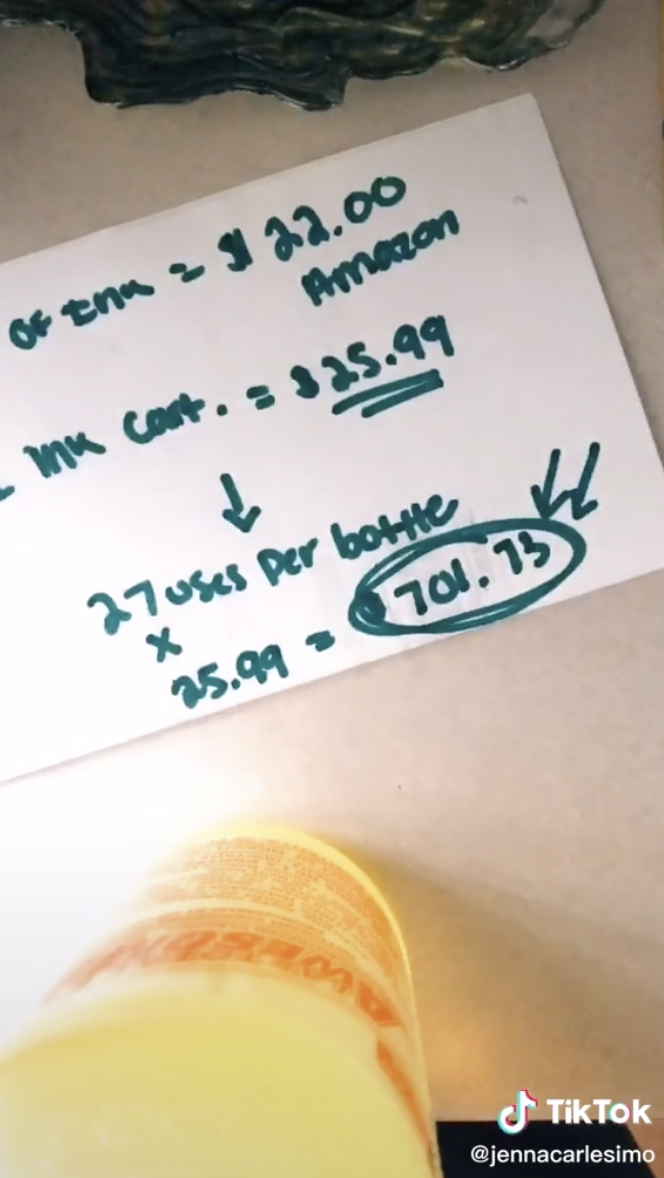 OF Ink = $22.00
Amazon
Ink Cart. = $25.99
27 uses per bottle
x
25.99 = $701.73
AWESOME
TikTok
@jennacarlesimo